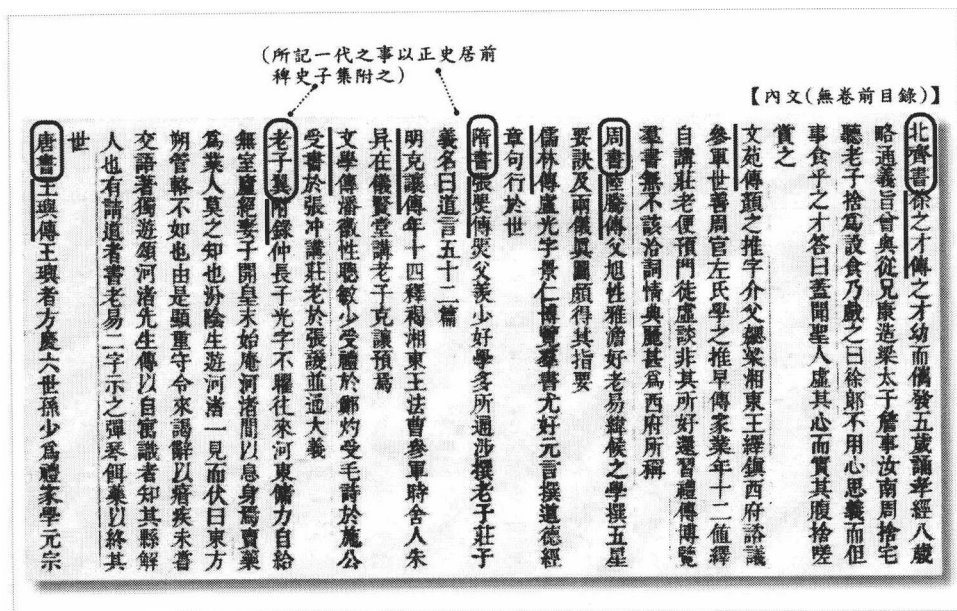 (所記一代之事以正史居前
稗史子集附之)
【內文(無卷前目錄)】
北齊書徐之才傳之才幼而儁發五歲誦孝經八歲
略通義旨曾與從兄康造梁太子詹事汝南周捨宅
聽老子捨爲設食乃戲之曰徐郎不用心思義而但
事食乎之才答曰蓋聞聖人虛其心而實其腹捨嗟
賞之
文苑傳顏之推字介父勰梁湘東王繹鎮西府諮議
參軍世善周官左氏學之推早傳家業年十二值繹
自講莊老便預門徒虛談非其所好還習禮傳博覽
羣書無不該洽詞情典麗甚爲西府所稱
周書陸騰傳父旭性雅澹好老易緯候之學撰五星
要訣及兩儀眞圖頗得其指要
儒林傳盧光字景仁博覽羣書尤好元言撰道德經
章句行於世
隋書張煚傳煚父羨少好學多所通涉撰老子莊子
義名曰道言五十二篇
明克讓傳年十四釋褐湘東王法曹參軍時舍人朱
异在儀賢堂講老子克讓預焉
文學傳潘徽性聰敏少受禮於鄭灼受毛詩於施公
受書於張沖講莊老於張譏並通大義
老子翼附錄仲長子光字不曜往來河東傭力自給
無室廬絕妻子開皇末始庵河渚間以息身焉賣藥
爲業人莫之知也汾陰生遊河渚一見而伏曰東方
朔管輅不如也由是顯重守令來謁辭以瘖疾未嘗
交語者獨遊頌河渚先生傳以自寓識者知其縣解
人也有請道者書老易二字示之彈琴餌藥以終其
世
唐書王璵傳王璵者方慶六世孫少爲禮家學元宗